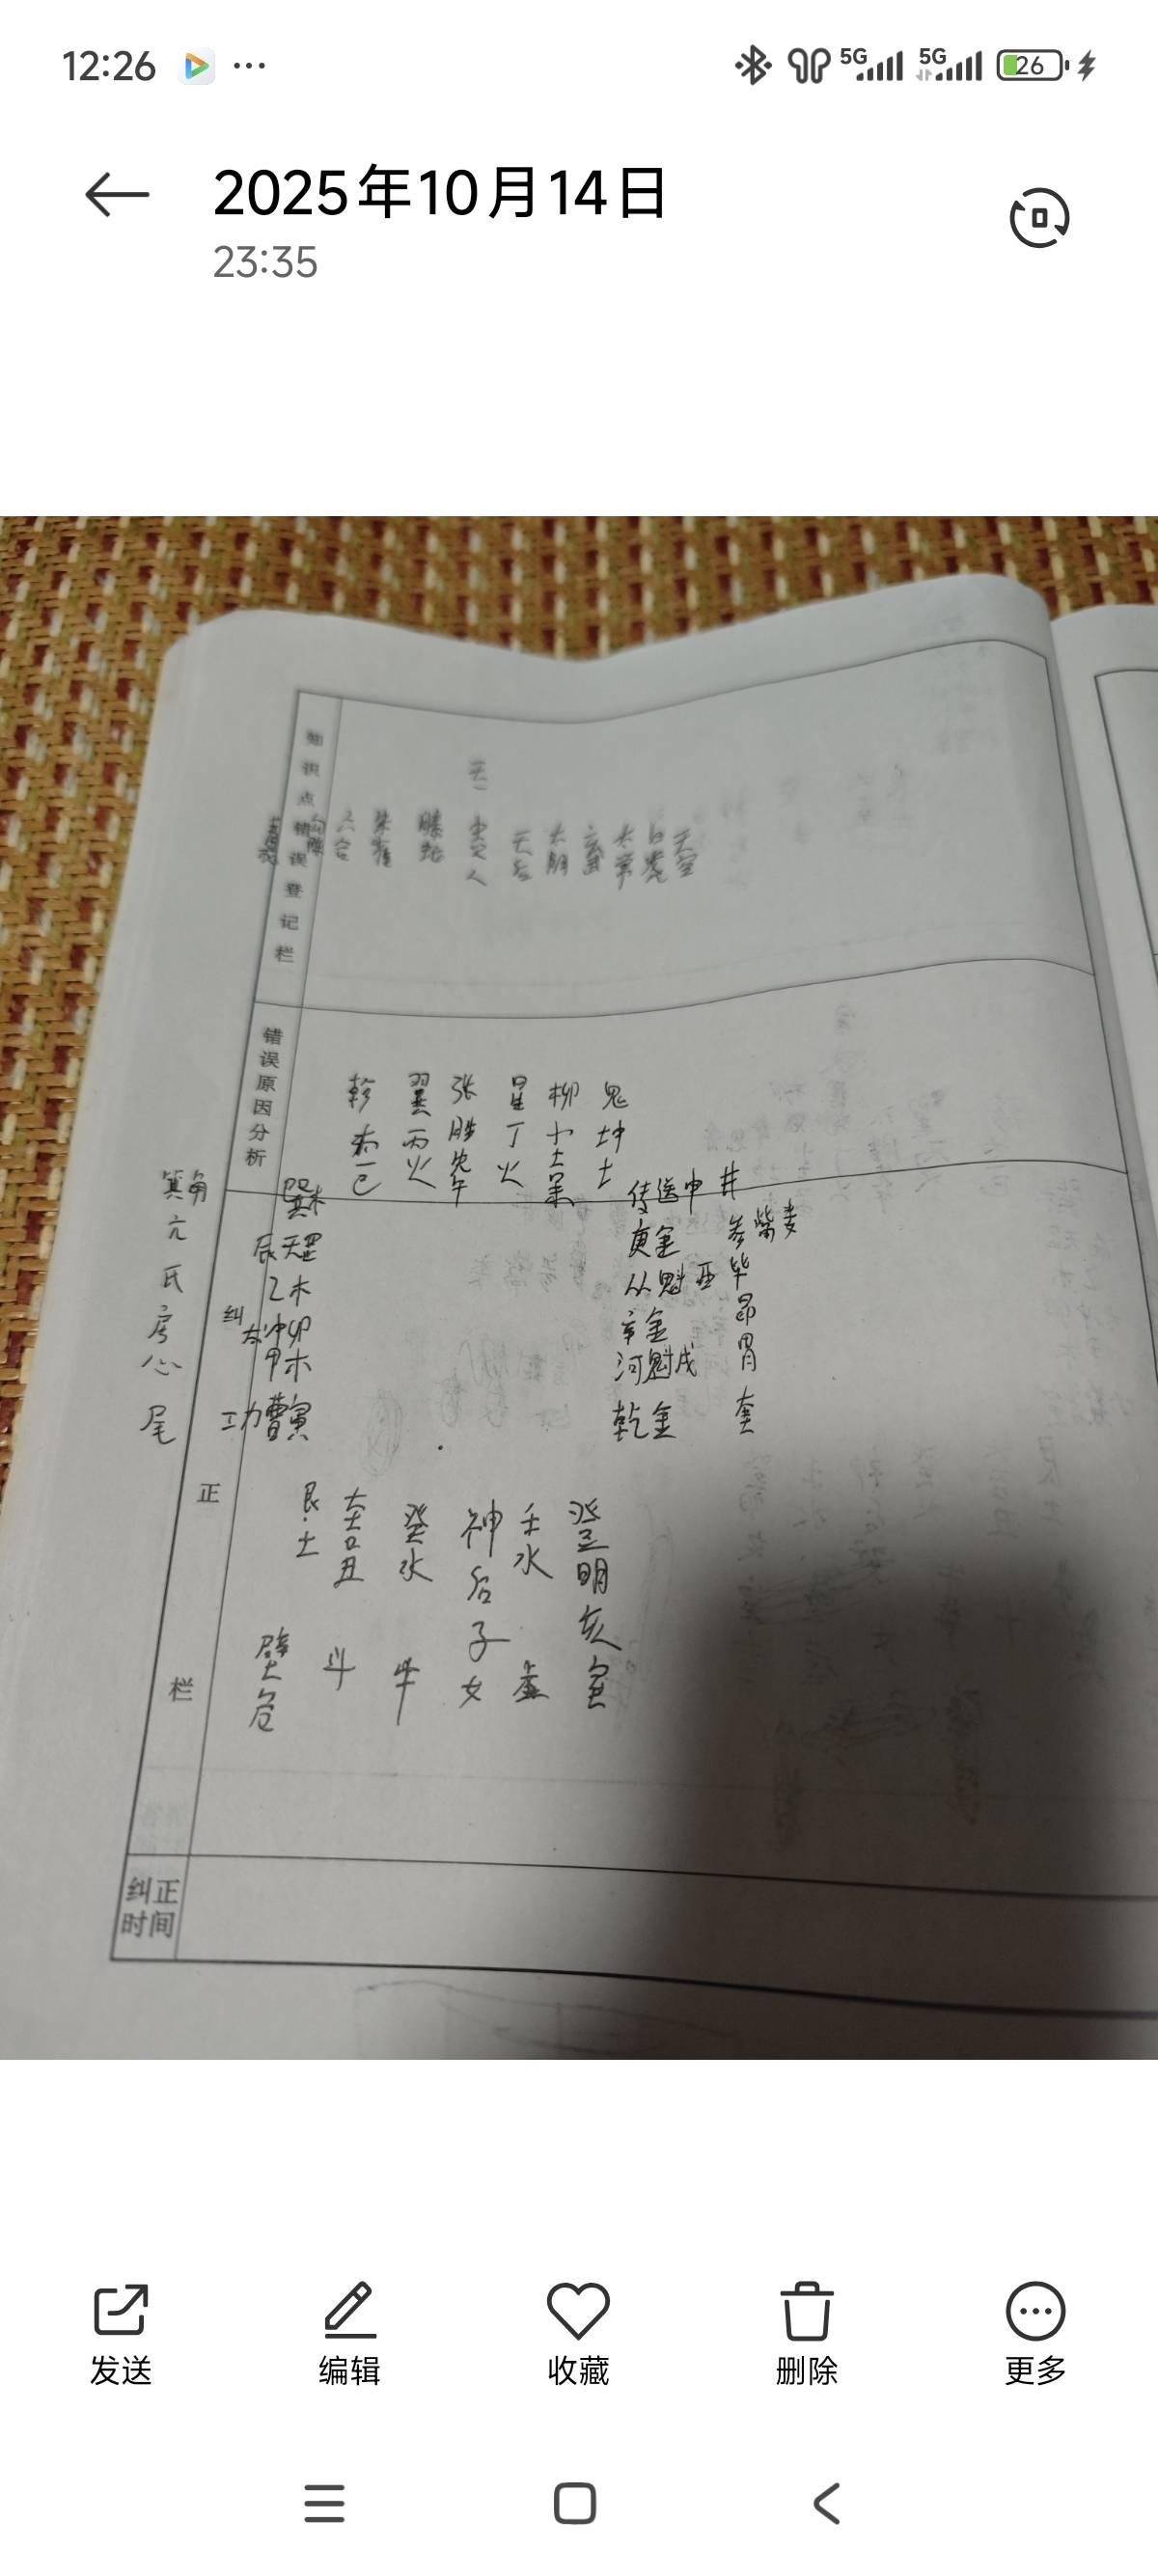 12:26
5G
5G
26
2025年10月14日
23:35
知识点错误登记栏
六合
朱雀
螣蛇
贵人
天后
太阴
玄武
太常
白虎
天空
错误原因分析
轸
翼丙火
张胜光午
星丁火
柳小吉未
鬼坤土
箕角
亢
氐
房
心
尾
巽木
辰天罡
乙木
太冲卯
甲木
功曹寅
传送申井
庚金
参觜
从魁酉毕
辛金昴
河魁戌胃
乾金奎
纠正栏
艮土
大吉丑
癸水
神后子
壬水
登明亥
壁危
斗
牛
女
虚
室
纠正时间
发送
编辑
收藏
删除
更多